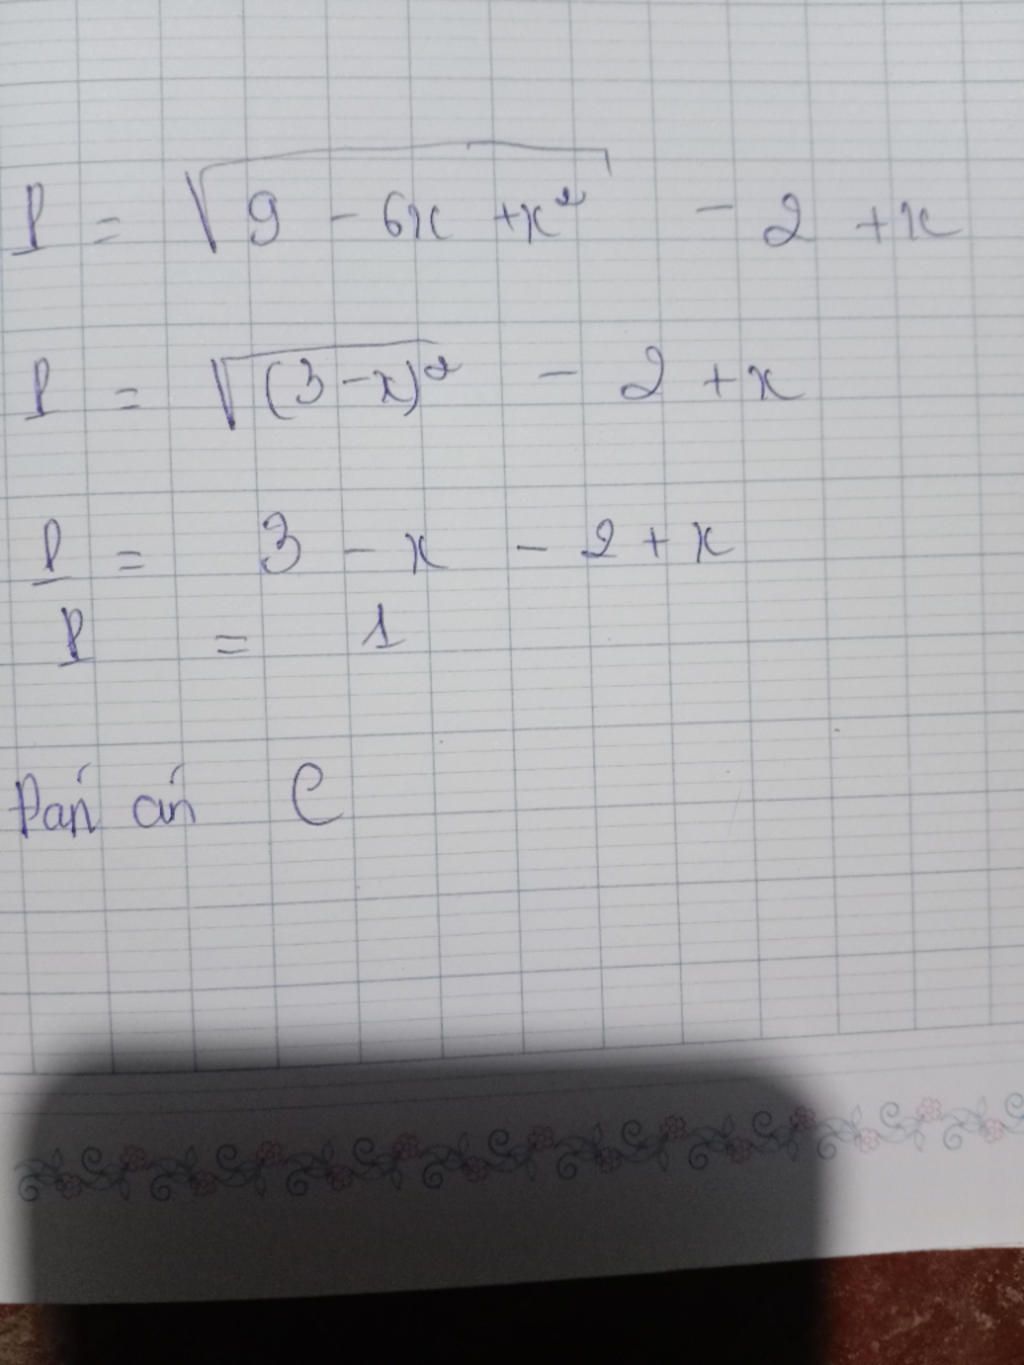 P = √(9 - 6x + x²) - 2 + x
P = √(3 - x)² - 2 + x
P = 3 - x - 2 + x
P = 1
Đáp án C